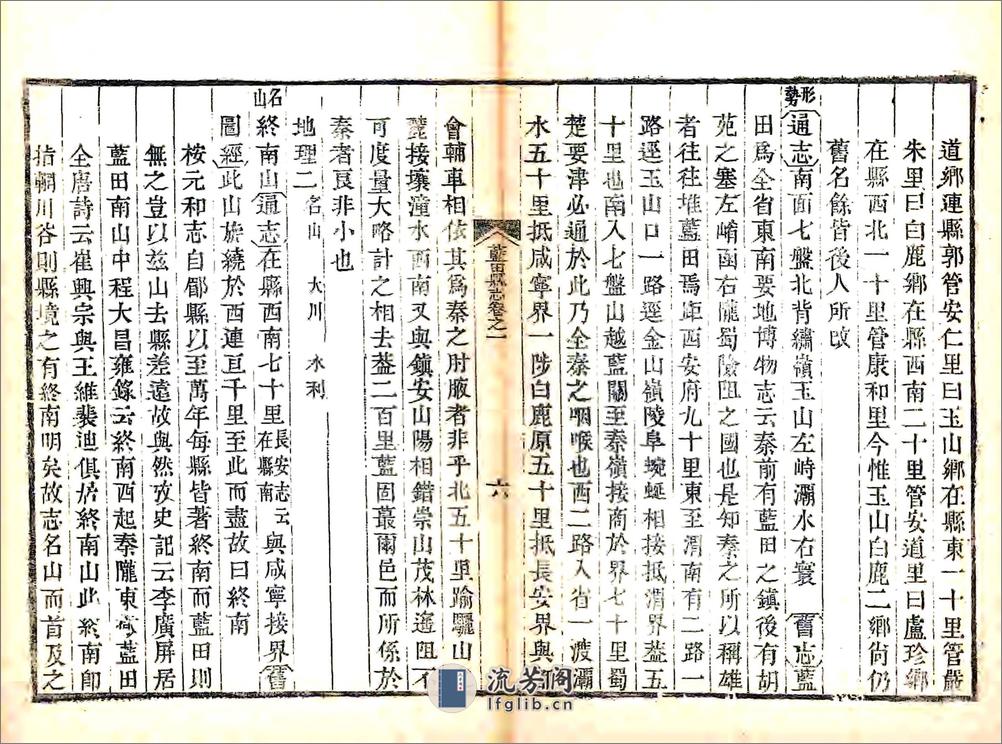 道鄉連縣郭管安仁里曰玉山鄉在縣東一十里管嚴
朱里曰白鹿鄉在縣西南二十里管安道里曰盧珍鄉
在縣西北一十里管康和里今惟玉山白鹿二鄉尚仍
舊名餘皆後人所改
形勢
通志南面七盤北背繡嶺玉山左峙灞水右寰 舊志藍
田爲全省東南要地博物志云秦前有藍田之鎮後有胡
苑之塞左崤函右隴蜀險阻之國也是知秦之所以稱雄
者往往堆藍田焉距西安府九十里東至渭南有二路一
路逕玉山口一路逕金山嶺陵阜蜿蜒相接抵渭界葢五
十里也南入七盤山越藍關至秦嶺接商於界七十里蜀
楚要津必通於此乃全秦之咽喉也西二路入省一渡灞
水五十里抵咸寧界一陟白鹿原五十里抵長安界與
藍田縣志卷之一
六
會輔車相依其爲秦之肘腋者非乎北五十里踰驪山
麓接壤潼水西南又與鎮安山陽相錯崇山茂林遙阻不
可度量大略計之相去葢二百里藍固蕞爾邑而所係於
秦者良非小也
地理二 名山 大川 水利
名山
終南山 通志在縣西南七十里長安志云在縣南與咸寧接界 舊
圖經此山旋繞於西連亘千里至此而盡故曰終南
桉元和志自鄠縣以至萬年每縣皆著終南而藍田則
無之豈以兹山去縣差遠故與然攷史記云李廣屏居
藍田南山中程大昌雍錄云終南西起秦隴東徹藍田
全唐詩云崔興宗與王維裴迪俱居終南山此終南卽
指輞川谷則縣境之有終南明矣故志名山而首及之
流芳阁
lfglib.cn